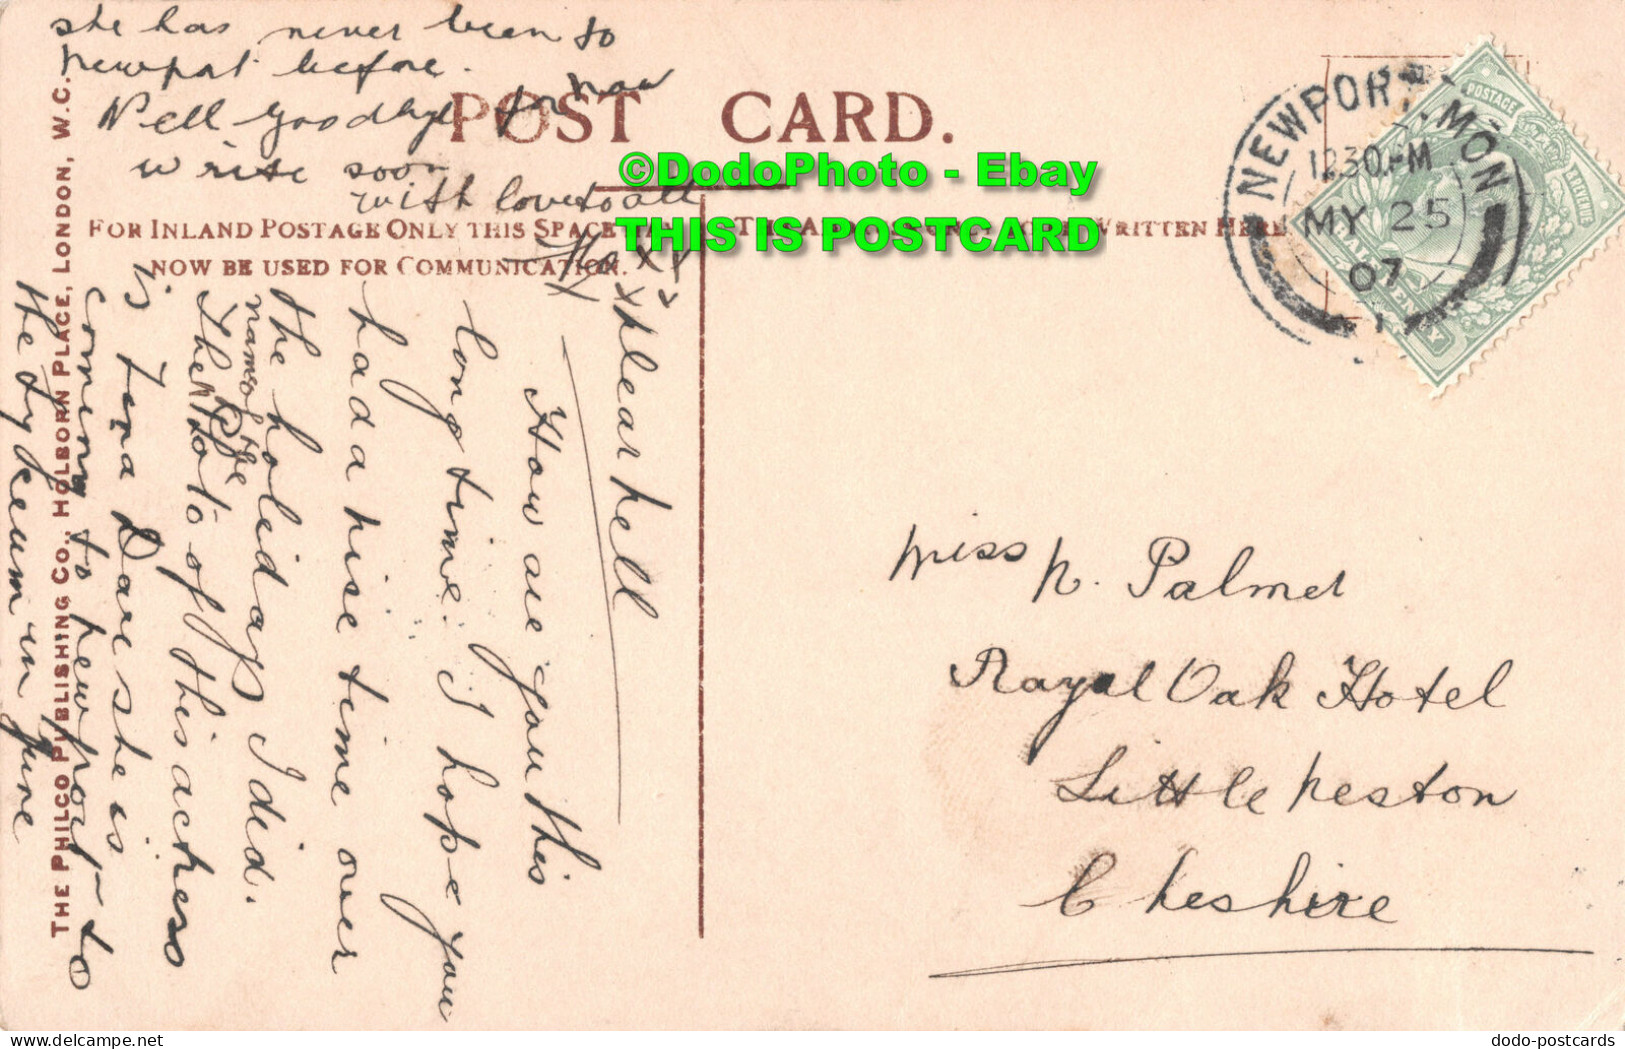 POST CARD.
FOR INLAND POSTAGE ONLY THIS SPACE
NOW BE USED FOR COMMUNICATION.
WRITTEN HERE
THE PHILCO PUBLISHING CO., HOLBORN PLACE, LONDON, W.C.
NEWPORT. MON
12.30PM
MY 25
07
POSTAGE
& REVENUE
HALFPENNY
©DodoPhoto - Ebay
THIS IS POSTCARD
Dear Nell
How are you this
long time. I hope you
had a nise time over
the holidays I did.
The name of the
Photo of this achress
is Zena Dare she is
coming to Newport to
the Lyceum in June
she has never been to
Newport before.
Well goodbye for now
write soon
with love to all
Miss N. Palmer
Royal Oak Hotel
Little Neston
Cheshire
dodo-postcards